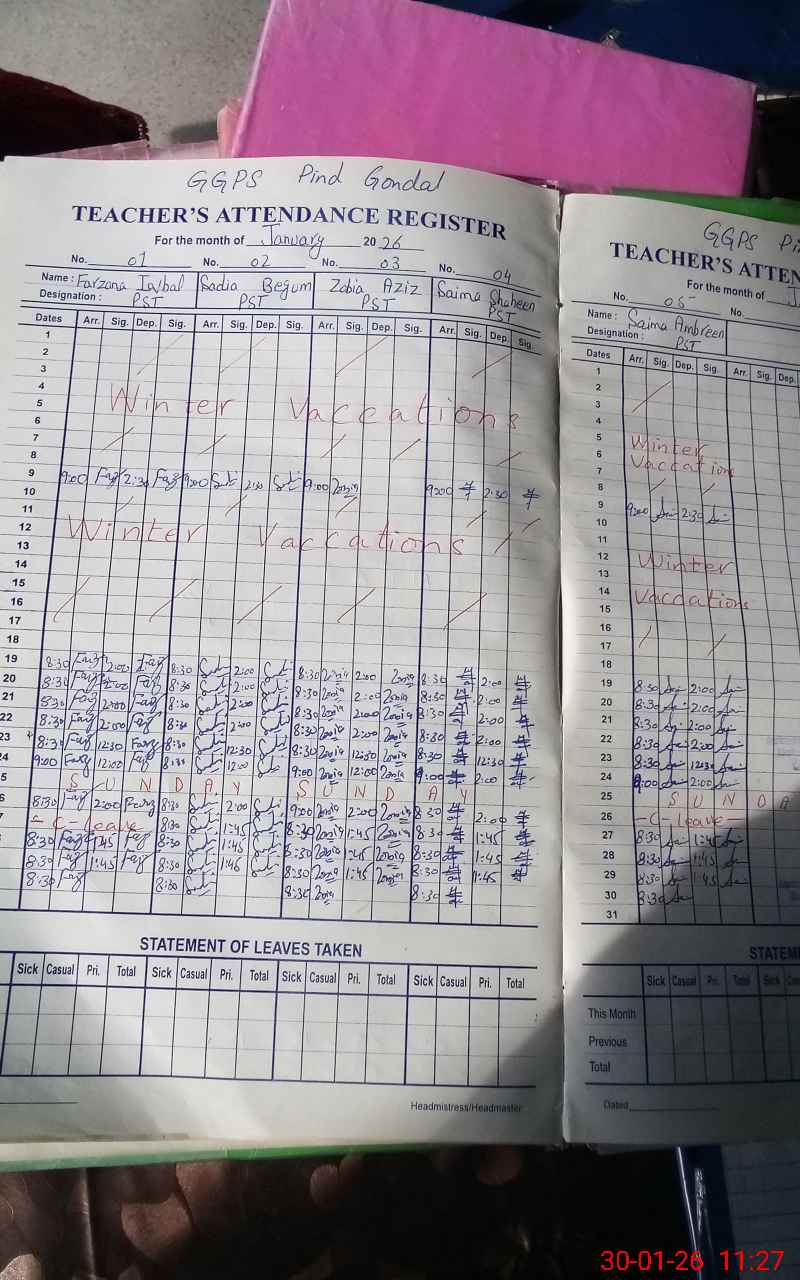 GGPS Pind Gondal
TEACHER'S ATTENDANCE REGISTER
For the month of January 2026
No. 01 No. 02 No. 03 No. 04
Name : Farzana Iqbal Sadia Begum Zobia Aziz Saima Shaheen
Designation : PST PST PST PST
Dates Arr. Sig. Dep. Sig. Arr. Sig. Dep. Sig. Arr. Sig. Dep. Sig. Arr. Sig. Dep. Sig.
1
2
3
4
5 Winter Vaccations
6
7
8
9 9:00 Faz 2:30 Faz 9:00 2:30 9:00 Zobia 9:00 2:30
10
11
12 Winter Vaccations
13
14
15
16
17
18
19 8:30 Faz 2:00 Faz 8:30 2:00 8:30 Zobia 2:00 Zobia 8:30 2:00
20 8:30 Faz 2:00 Faz 8:30 2:00 8:30 Zobia 2:00 Zobia 8:30 2:00
21 8:30 Faz 2:00 Faz 8:30 2:00 8:30 Zobia 2:00 Zobia 8:30 2:00
22 8:30 Faz 2:00 Faz 8:30 2:00 8:30 Zobia 2:00 Zobia 8:30 2:00
23 8:30 Faz 12:30 Faz 8:30 12:30 8:30 Zobia 12:30 Zobia 8:30 12:30
24 9:00 Faz 12:00 Faz 8:30 12:00 9:00 Zobia 12:00 Zobia 9:00 2:00
5 S U N D A Y S U N D A Y
6 8:30 Faz 2:00 Faz 8:30 2:00 9:00 Zobia 2:00 Zobia 8:30 2:00
- C - leave 8:30 1:45 8:30 Zobia 1:45 Zobia 8:30 1:45
8:30 Faz 1:45 Faz 8:30 1:45 8:30 Zobia 1:45 Zobia 8:30 1:45
8:30 Faz 1:45 Faz 8:30 1:45 8:30 Zobia 1:45 Zobia 8:30 1:45
8:30 Faz 8:30 8:30 Zobia 8:30
STATEMENT OF LEAVES TAKEN
Sick Casual Pri. Total Sick Casual Pri. Total Sick Casual Pri. Total Sick Casual Pri. Total
Headmistress/Headmaster
GGPS Pi
TEACHER'S ATTEN
For the month of J
No. 05 No.
Name : Saima Ambreen
Designation : PST
Dates Arr. Sig. Dep. Sig. Arr. Sig. Dep.
1
2
3
4
5 Winter
6 Vaccation
7
8
9 9:00 2:30
10
11
12 Winter
13
14 Vaccations
15
16
17
18
19 8:30 2:00
20 8:30 2:00
21 8:30 2:00
22 8:30 2:00
23 8:30 12:30
24 9:00 2:00
25 S U N D A
26 - C - leave -
27 8:30 1:45
28 8:30 1:45
29 8:30 1:45
30 8:30
31
STATEM
Sick Casual Pri. Total Sick
This Month
Previous
Total
Dated
30-01-26 11:27